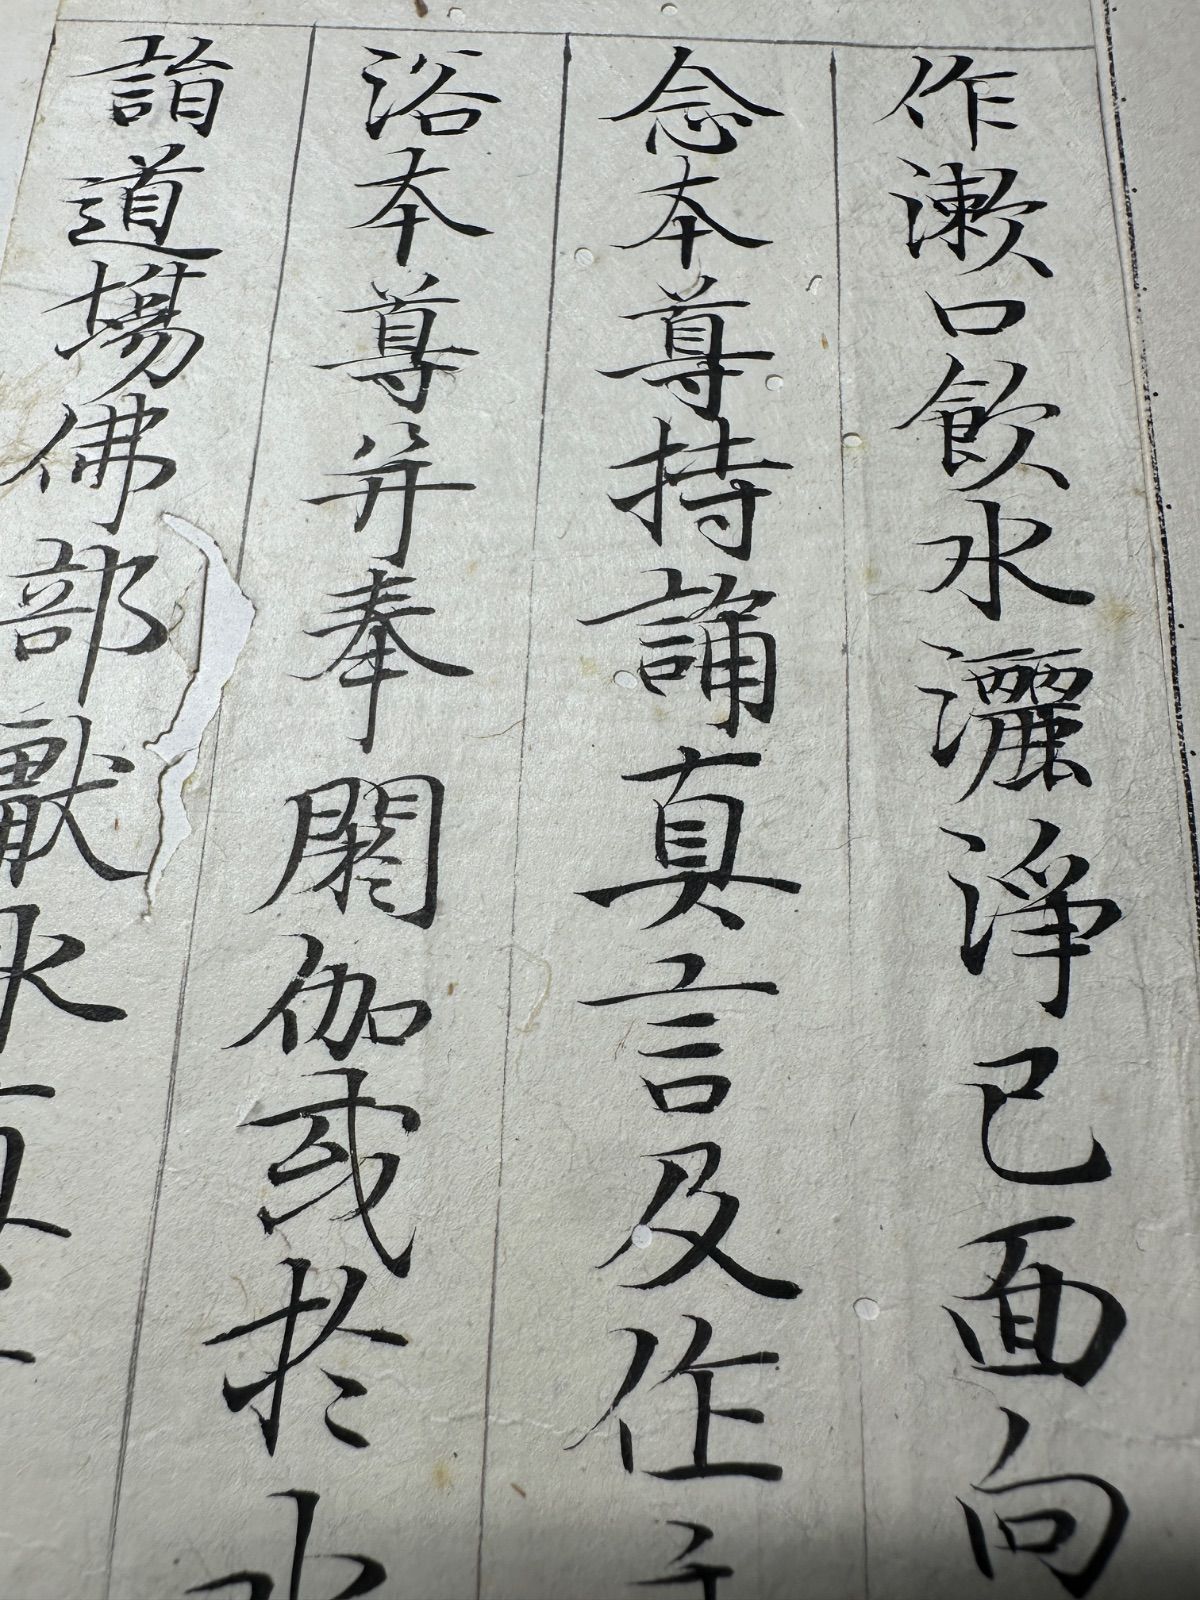 作漱口飲水灑淨已面向
念本尊持誦真言及作
浴本尊并奉閼伽或於水
詣道場佛部獻水真言